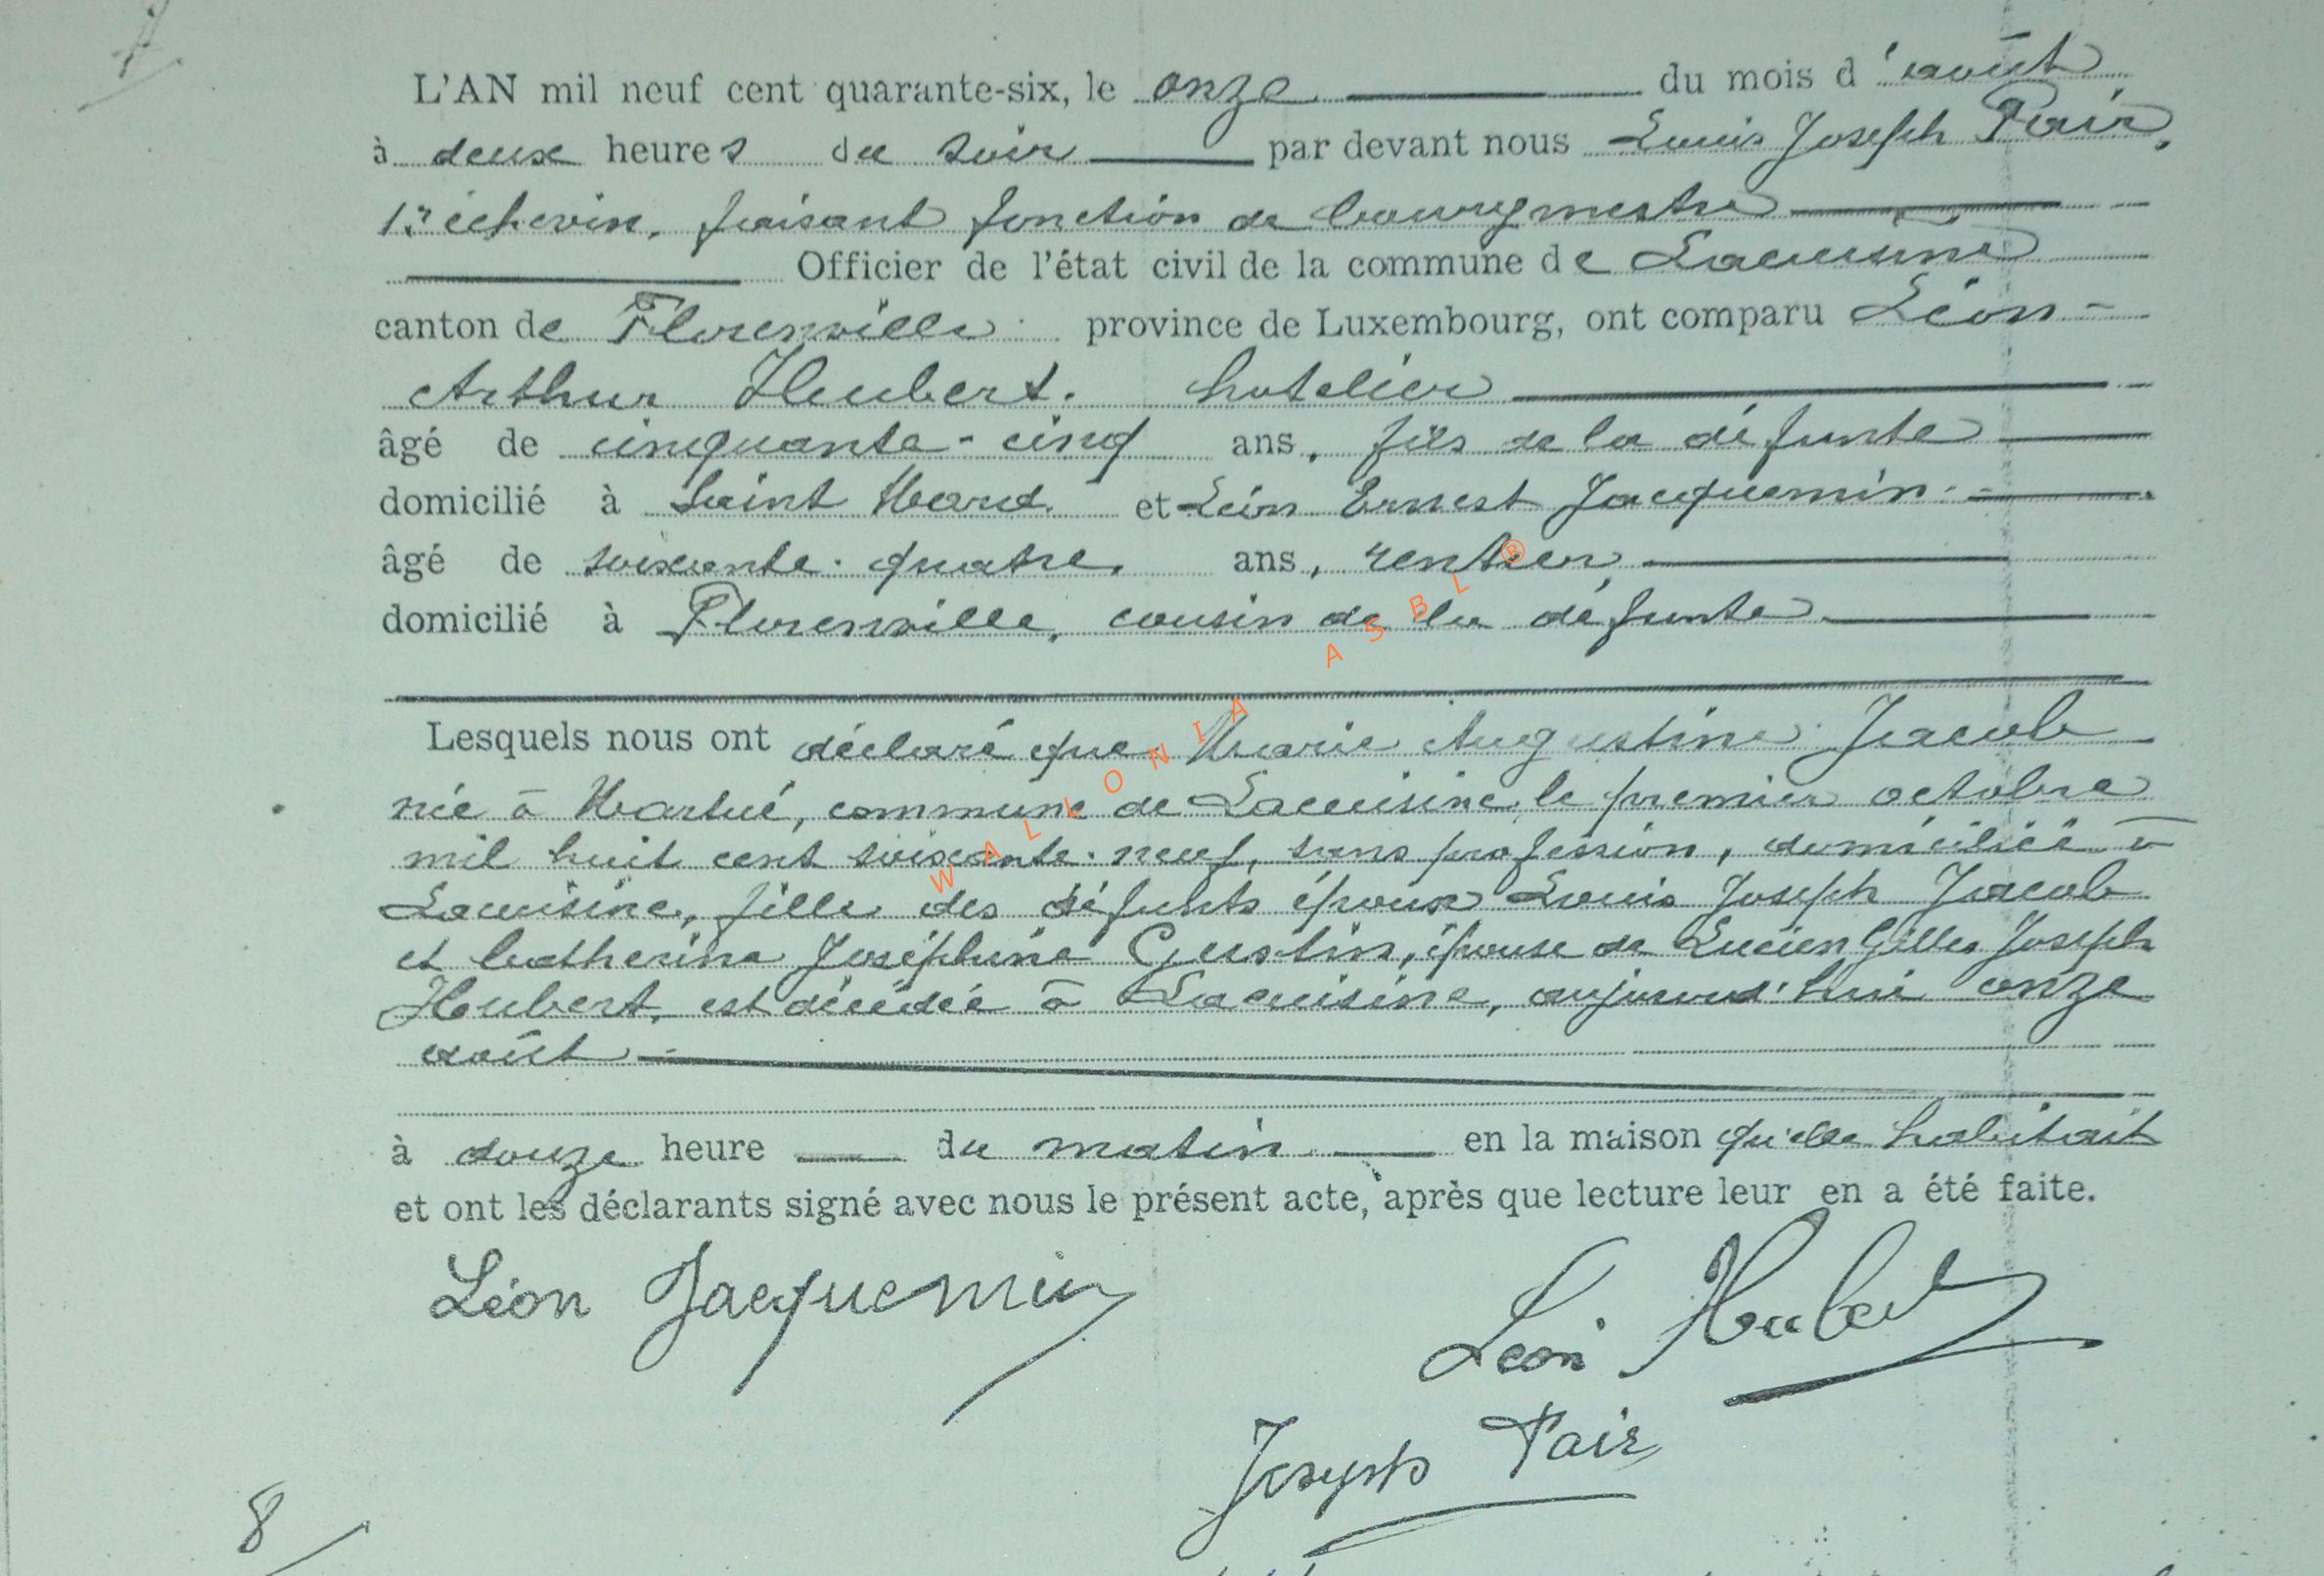 L'AN mil neuf cent quarante-six, le onze du mois d'août
à deux heures du soir par devant nous Louis Joseph Pair,
1er échevin, faisant fonction de bourgmestre
Officier de l'état civil de la commune de Lacuisine
canton de Florenville province de Luxembourg, ont comparu Léon-
Arthur Hubert. hotelier
âgé de cinquante-cinq ans, fils de la défunte
domicilié à Saint Mard. et Léon Ernest Jacquemin
âgé de soixante-quatre. ans, rentier
domicilié à Florenville, cousin de la défunte
Lesquels nous ont déclaré que Marie Augustine Jacob
née à Martué, commune de Lacuisine, le premier octobre
mil huit cent soixante-neuf, sans profession, domiciliée à
Lacuisine, fille des défunts époux Louis Joseph Jacob
et Catherine Joséphine Gustin, épouse de Lucien Gilles Joseph
Hubert, est décédée à Lacuisine, aujourd'hui onze
août
à douze heure du matin en la maison qu'elle habitait
et ont les déclarants signé avec nous le présent acte, après que lecture leur en a été faite.
Léon Jacquemin
Léon Hubert
Joseph Pair
8
WALLONIA ASBL ®